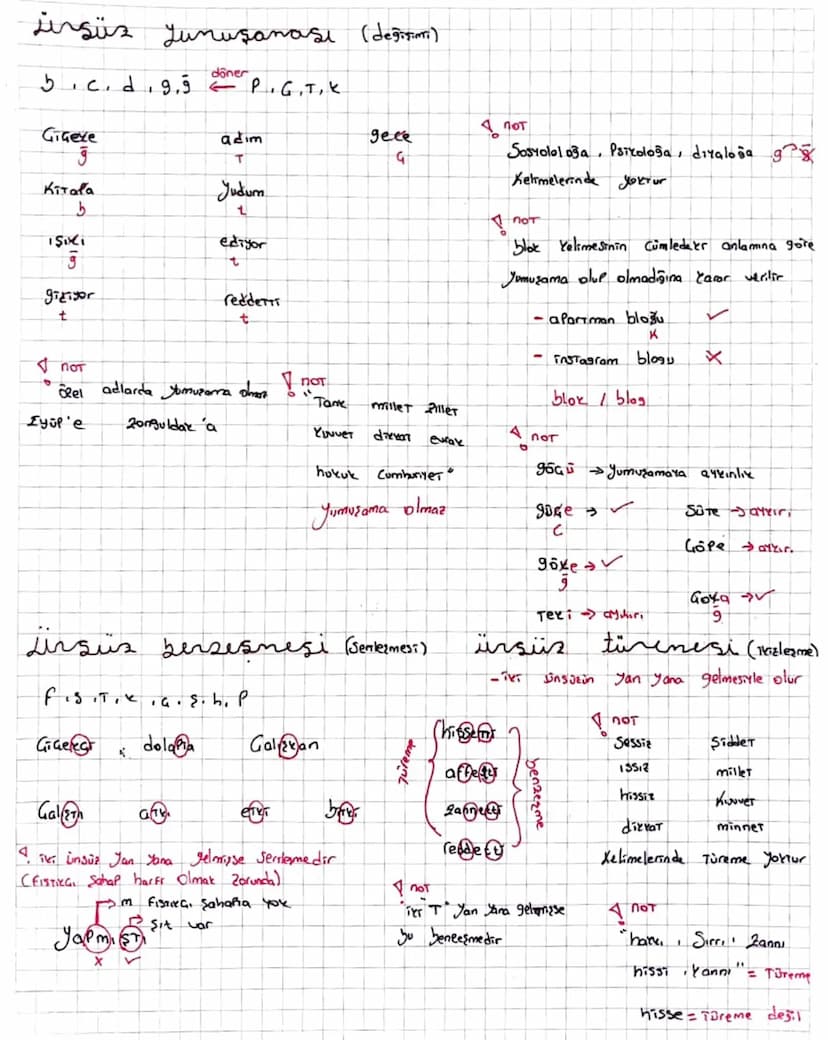 ünsüz yumuşaması (değişimi)
b, c, d, g, ğ döner ← p, ç, t, k
Çiçeke
ğ
adım
T
gece
ç
Kitapa
b
Yudum
t
ışıkı
ğ
ediyor
t
gidiyor
t
reddetti
t
! not
özel adlarda yumuşama olmaz
Eyüp'e Zonguldak'a
! not
"Tank millet zillet
kuvvet dikkat evrak
hukuk cumhuriyet"
yumuşama olmaz
! not
Sosyoloğa, Psikoloğa, diyaloğa g ğ
kelimelerinde yoktur
! not
blok kelimesinin cümledeki anlamına göre
yumuşama olup olmadığına karar verilir
- apartman bloğu ✓
k
- instagram blogu ✗
blok / blog
! not
göçü → yumuşamaya aykırılık
güçe → ✓
c
göke → ✓
ğ
Teki → aykırı
Süte → aykırı
Çöpe → aykırı
Çoka → ✓
ğ
ünsüz benzeşmesi (Sertleşmesi)
f, s, t, k, ç, ş, h, p
Çiçekçi, dolapta Çalışkan
Çalıştı atkı etki bitki
! iki ünsüz yan yana gelmişse sertleşmedir
(Fıstıkçı şahap harfi olmak zorunda)
→ m fıstıkçı şahapta yok
→ şıt var
yapmıştı
✗ ✓
ünsüz türemesi (ikizleşme)
- iki ünsüzün yan yana gelmesiyle olur
türeme
affetti
zannetti
reddetti
benzeşme
! not
iki "T" yan yana gelmişse
bu benzeşmedir
! not
Sessiz Şiddet
ıssız millet
hissiz kuvvet
dikkat minnet
kelimelerinde türeme yoktur
! not
Sırrı, zannı
hissi = Türeme
hisse = türeme değil